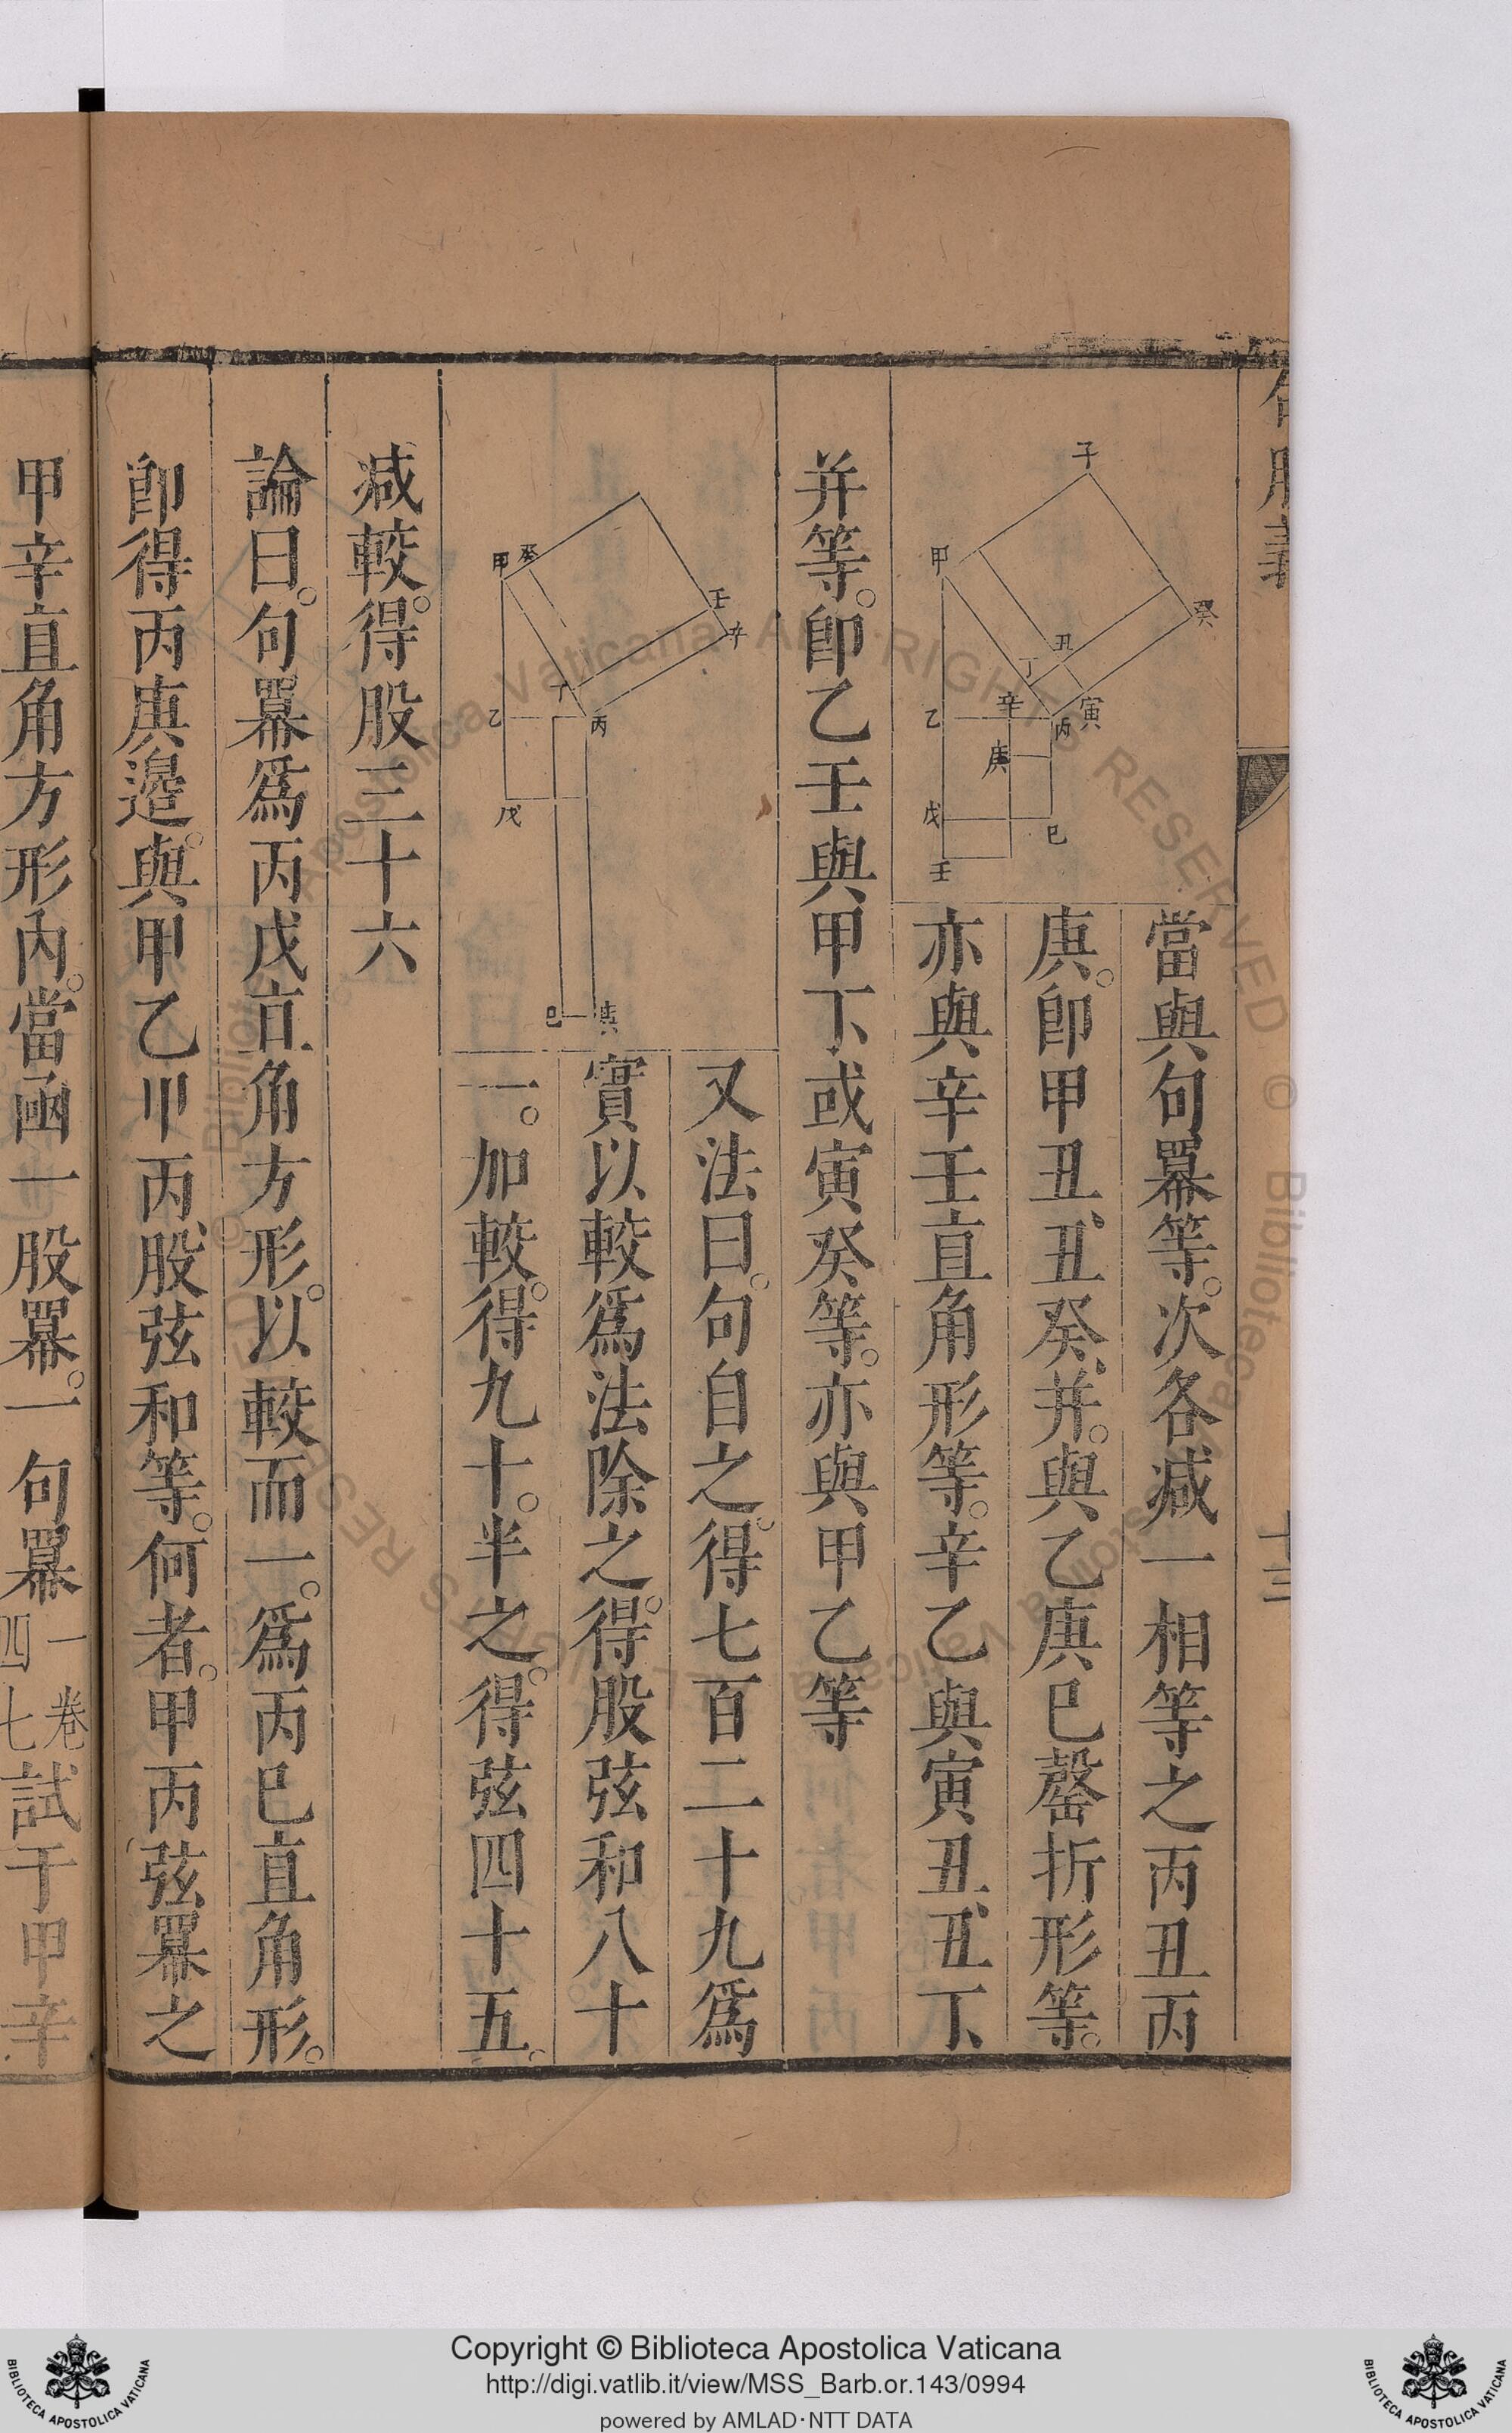 當與句冪等。次各減一相等之丙丑丙
庚。卽甲丑、丑癸、并。與乙庚巳罄折形等。
亦與辛壬直角形等。辛乙與寅丑、丑丁、
并等。卽乙壬與甲丁、或寅癸等。亦與甲乙等
子
甲
癸
丑
丁
辛
寅
乙
丙
庚
戊
巳
壬
又法曰。句自之。得七百二十九爲
實以較爲法除之。得股弦和八十
一。加較。得九十。半之。得弦四十五。
甲
癸
壬
辛
丁
乙
丙
戊
巳
庚
減較。得股三十六
論曰。句冪爲丙戊直角方形。以較而一。爲丙巳直角形。
卽得丙庚邊。與甲乙甲丙、股弦和等。何者。甲丙弦冪之
甲辛直角方形內。當函一股冪。一句冪一卷四七試于甲辛
Copyright © Biblioteca Apostolica Vaticana
http://digi.vatlib.it/view/MSS_Barb.or.143/0994
powered by AMLAD·NTT DATA
BIBLIOTECA APOSTOLICA VATICANA
BIBLIOTECA APOSTOLICA VATICANA